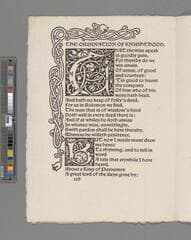 THE ORDINATION OF KNIGHTHOOD.
AT the wise speak
is goodly gain,
For thereby do we
win amain
Of sense, of good
and courtesy:
'Tis good to haunt
the company
Of him who of his
ways hath heed,
And hath no keep of folly's deed.
For as in Solomon we find,
The man that is of wisdom's kind
Doth well in every deed there is:
And if at whiles he doth amiss
In whatso wise, unwittingly,
Swift pardon shall he have thereby,
Whereas he willeth penitence.
BUT now I needs must draw
me hence
To rhyming, and to tell in
word
A tale that erewhile I have
heard,
About a King of Paynemry
A great lord of the days gone by: